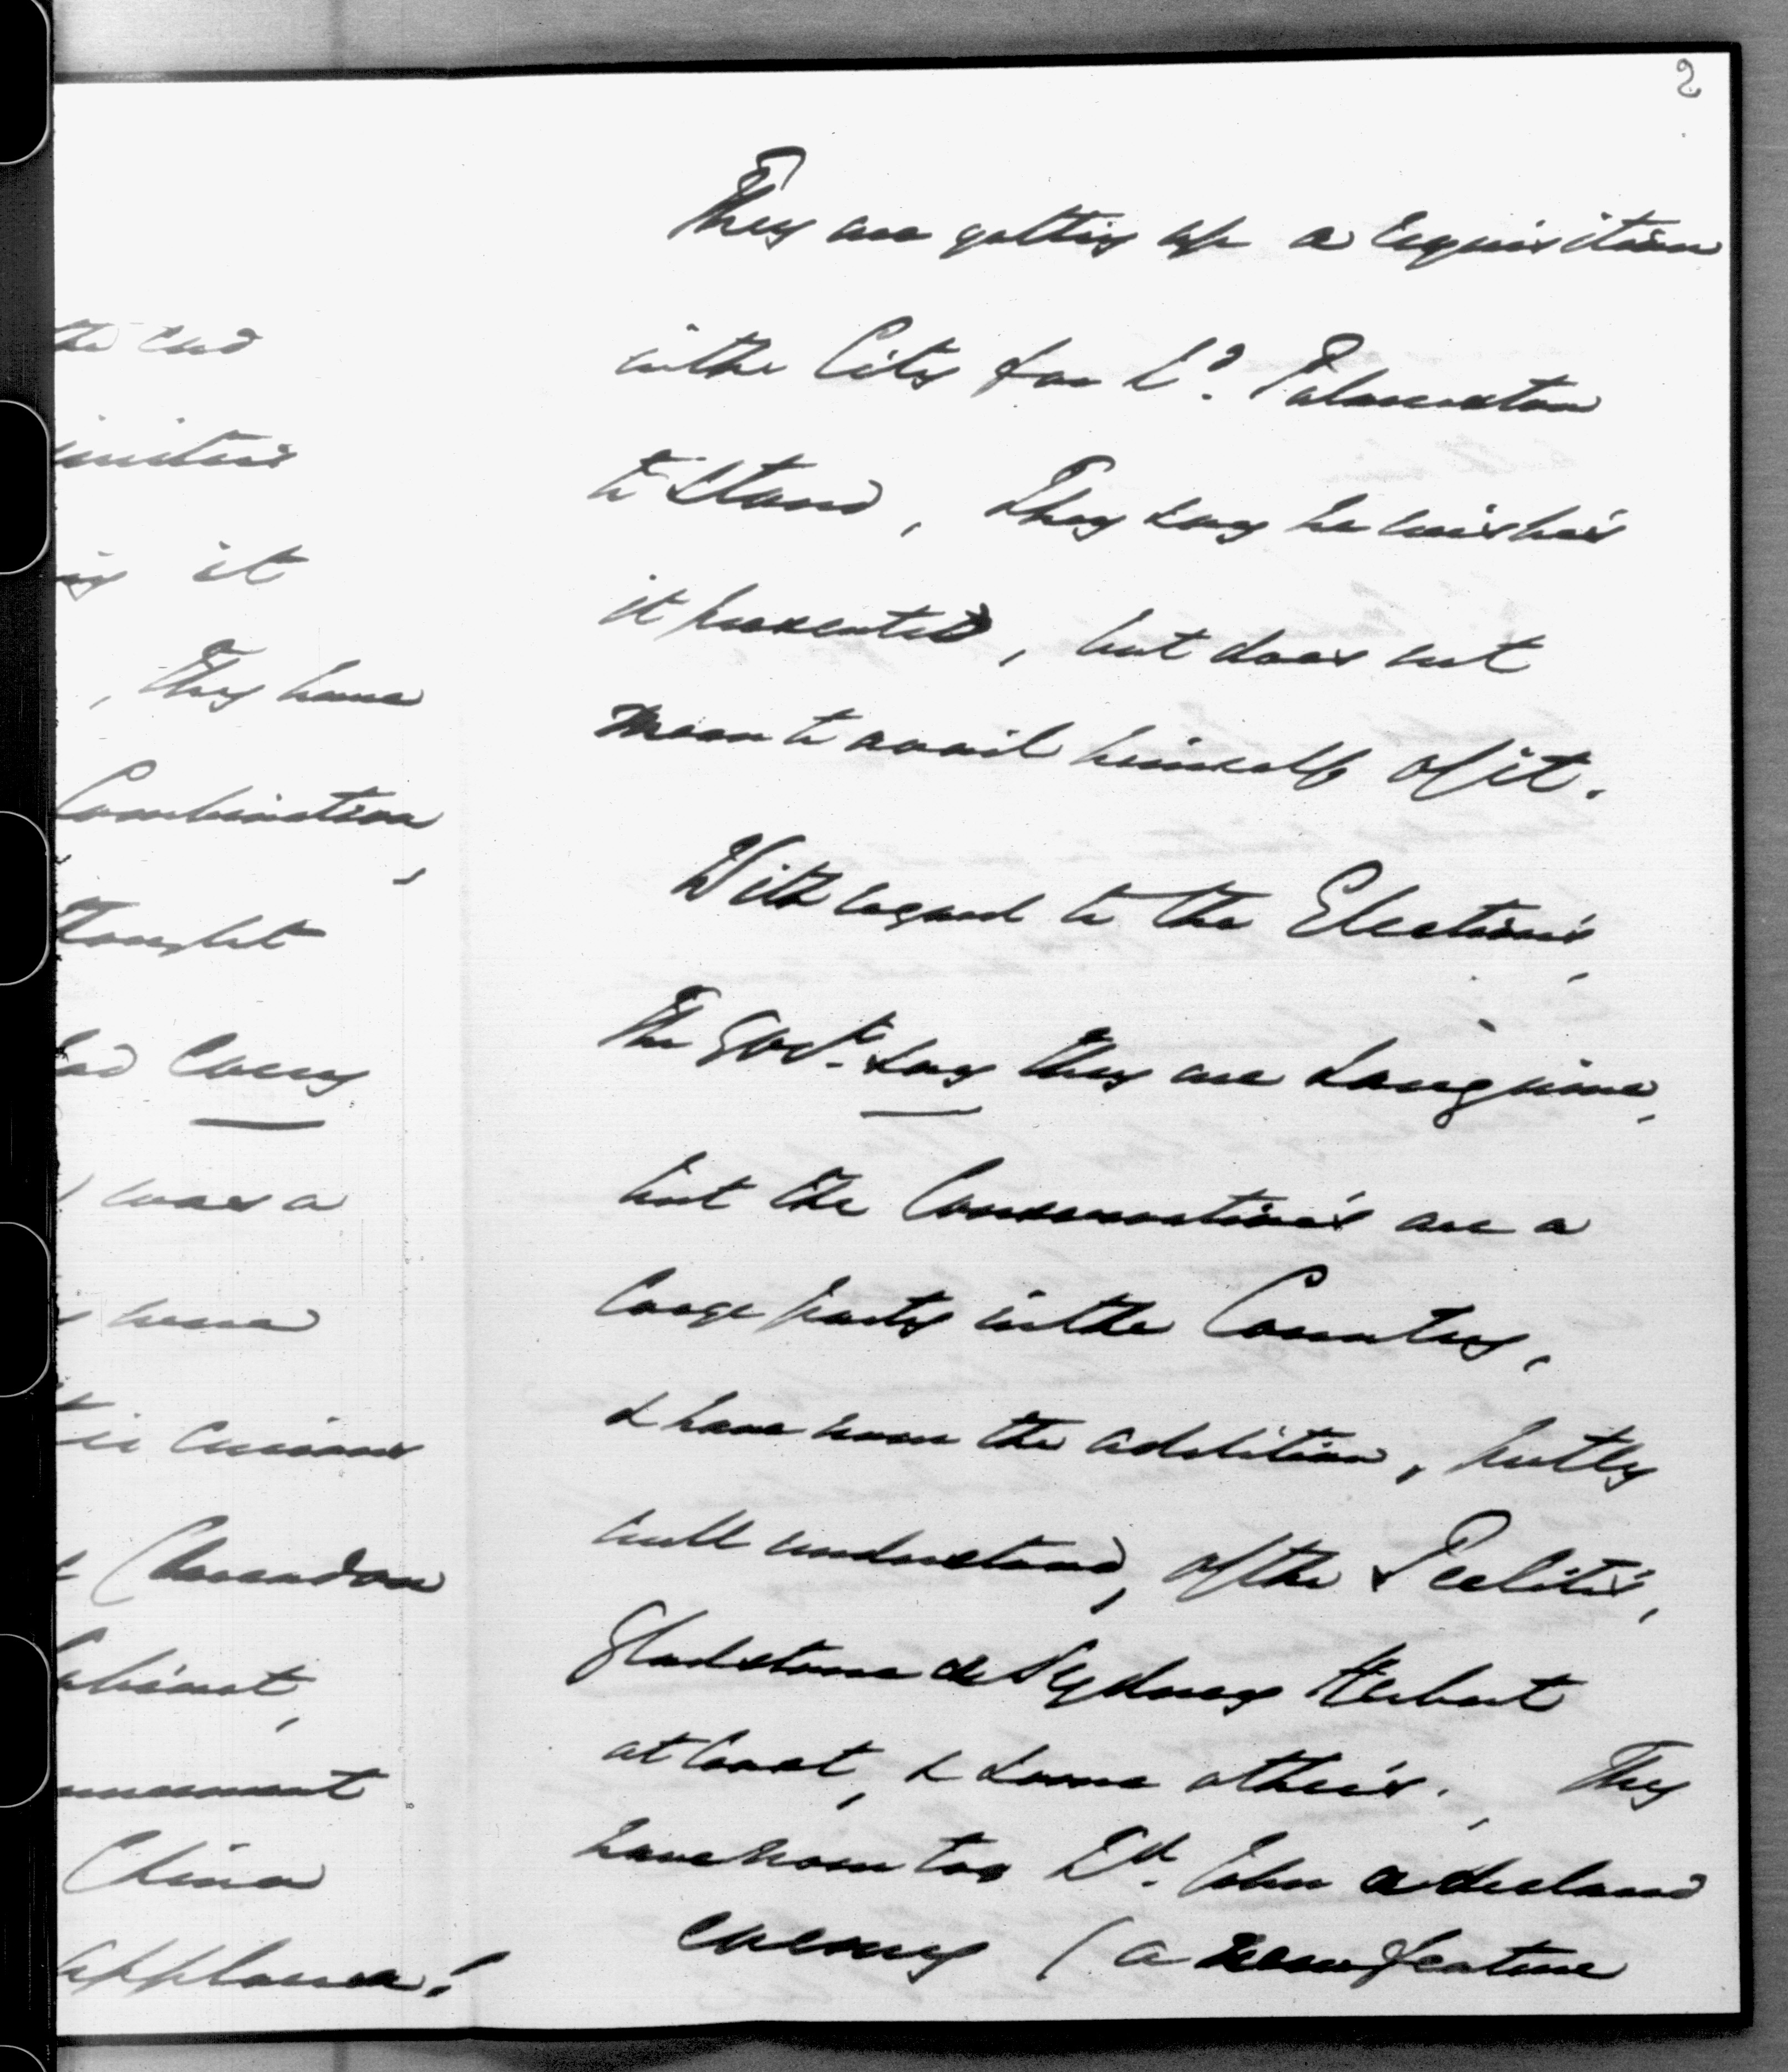 2
the end
it
, they have
Combination,
thought
had every
was a
here
is curious
Clarendon
Cabinet,
China
applause!
They are getting up a requisition
in the City for Ld. Palmerston
to stand, They say he wishes
it presented, but does not
mean to avail himself of it.
With regard to the Elections,
The Govt. say they are sanguine,
but the Conservatives are a
large party in the Country,
& have now the addition, partly
well understood, of the Peelites,
Gladstone & Sydney Herbert
at least, & some others. They
have now too Ld. John a declared
enemy (a new feature